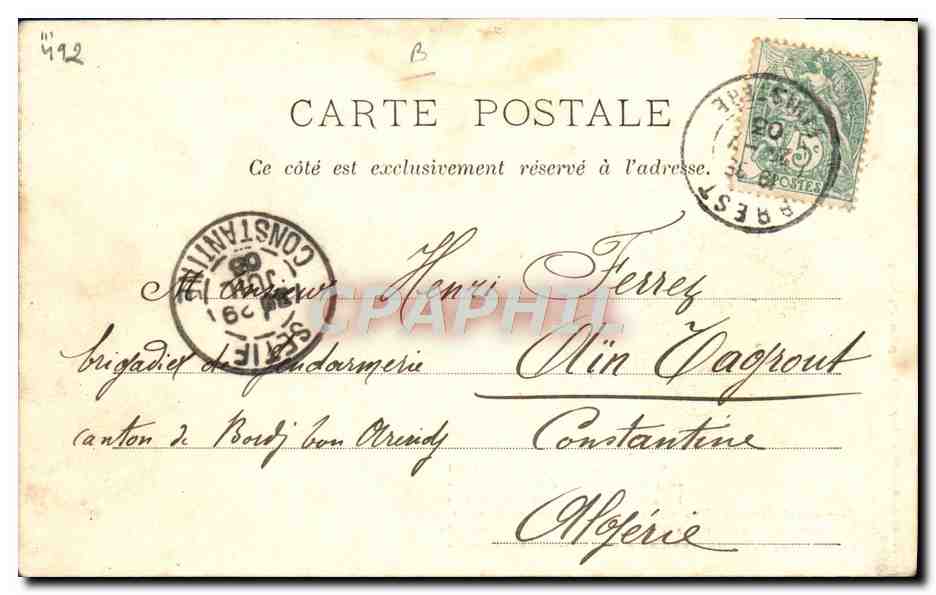 492
B
CARTE POSTALE
Ce côté est exclusivement réservé à l'adresse.
5c
POSTES
BREST
FINISTERE
03
SETIF
CONSTANTINE
29
JUIL
03
CPAPHIL
Monsieur Henri Ferrez
brigadier de gendarmerie Aïn Tagrout
canton de Bordj bou Areridj Constantine
Algérie